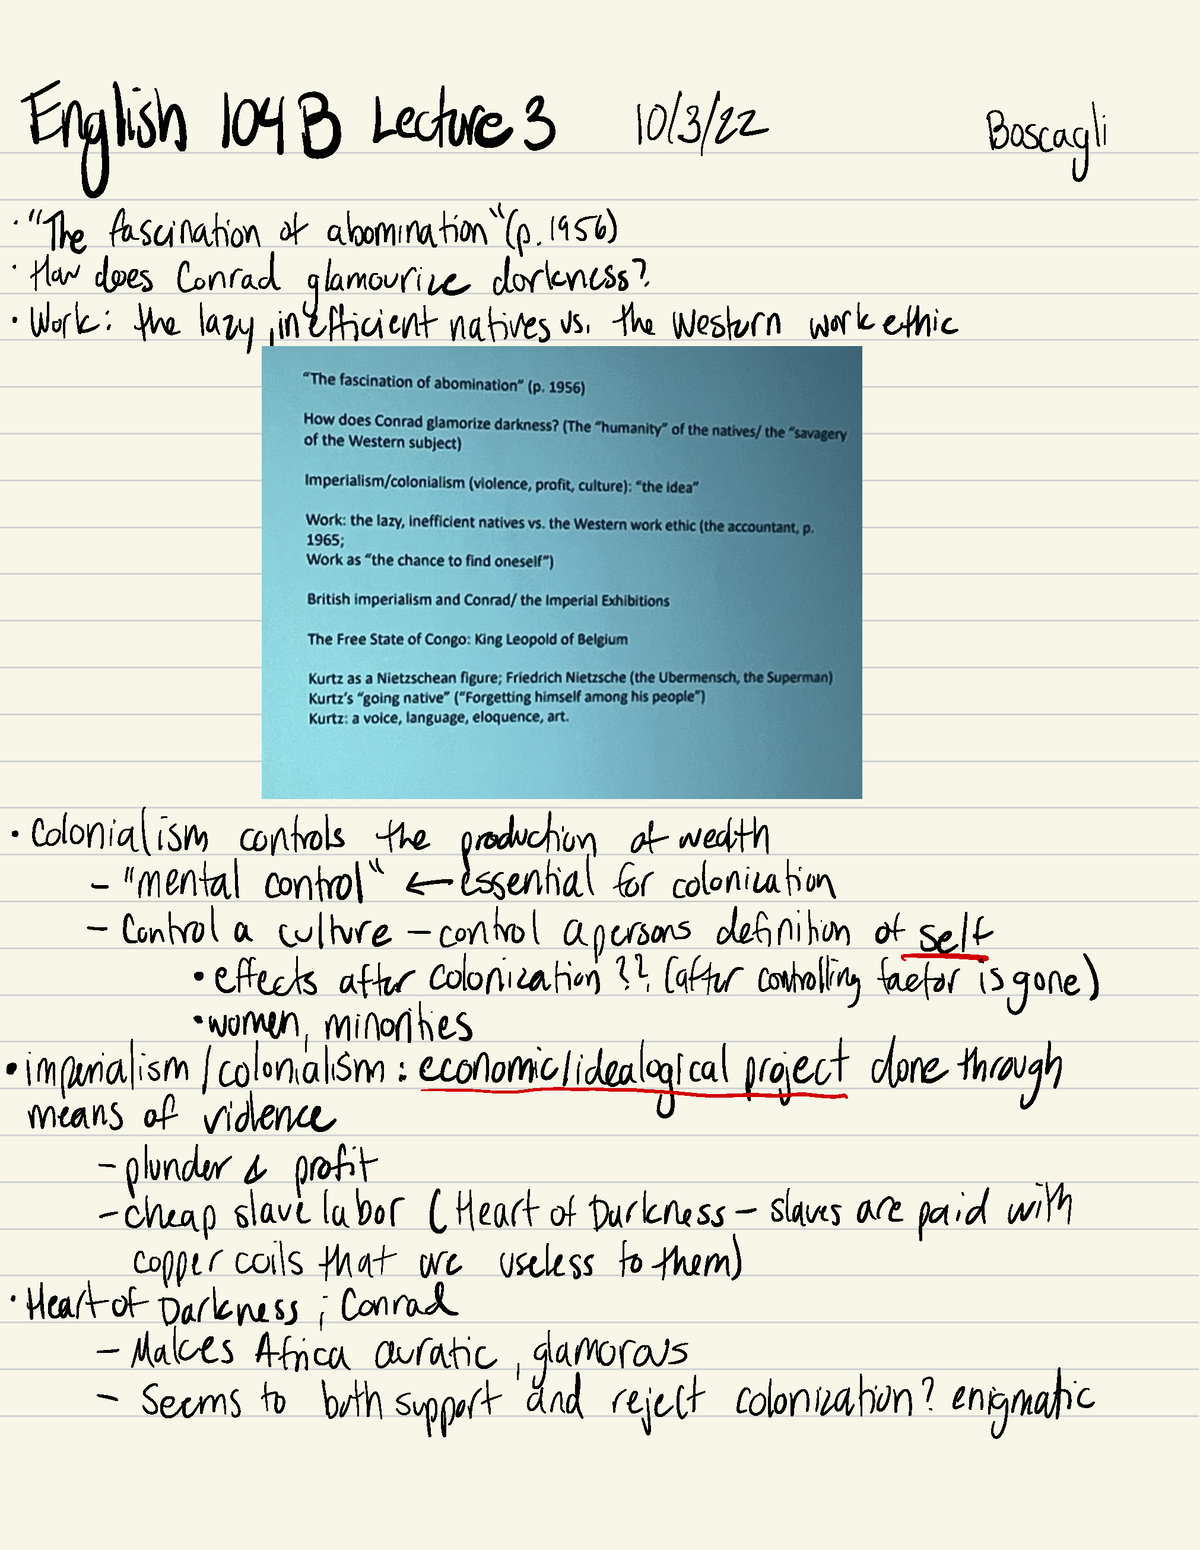 English 104B Lecture 3 10/3/22 Boscagli
• "The fascination of abomination" (p. 1956)
• How does Conrad glamourize darkness?
• Work: the lazy, inefficient natives vs. the Western work ethic
"The fascination of abomination" (p. 1956)
How does Conrad glamorize darkness? (The "humanity" of the natives/ the "savagery
of the Western subject)
Imperialism/colonialism (violence, profit, culture): "the idea"
Work: the lazy, inefficient natives vs. the Western work ethic (the accountant, p.
1965;
Work as "the chance to find oneself")
British imperialism and Conrad/ the Imperial Exhibitions
The Free State of Congo: King Leopold of Belgium
Kurtz as a Nietzschean figure; Friedrich Nietzsche (the Ubermensch, the Superman)
Kurtz's "going native" ("Forgetting himself among his people")
Kurtz: a voice, language, eloquence, art.
• Colonialism controls the production of wealth
- "mental control" ← essential for colonization
- Control a culture - control a persons definition of self
• effects after colonization?? (after controlling factor is gone)
• women, minorities
• imperialism/colonialism: economic/idealogical project done through
means of violence
- plunder & profit
- cheap slave labor (Heart of Darkness - slaves are paid with
copper coils that are useless to them)
• Heart of Darkness ; Conrad
- Makes Africa auratic, glamorous
- Seems to both support and reject colonization? enigmatic